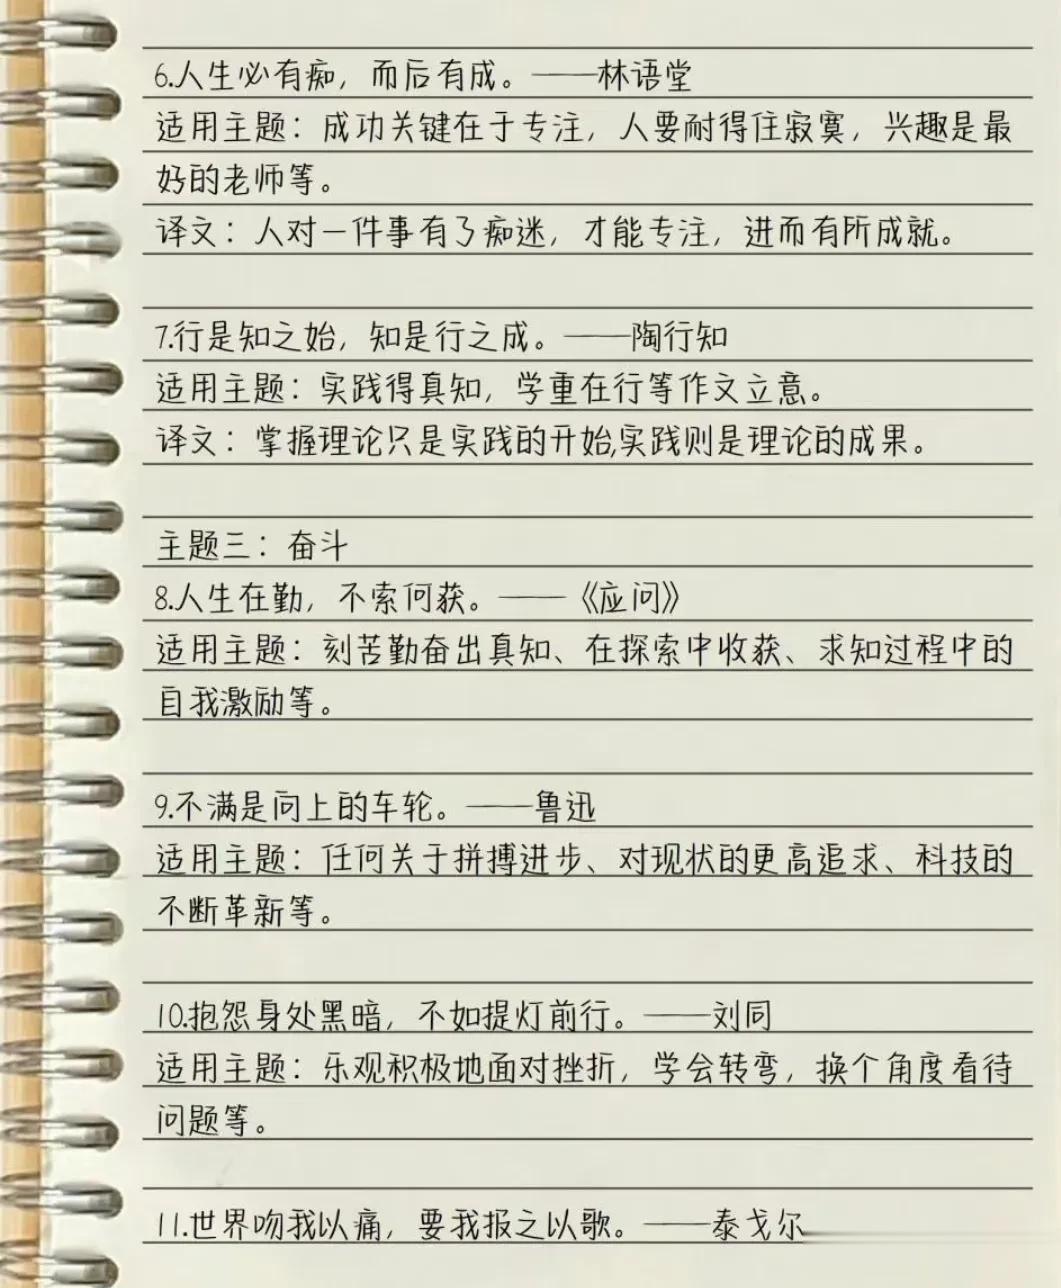 6.人生必有痴，而后有成。——林语堂
适用主题：成功关键在于专注，人要耐得住寂寞，兴趣是最
好的老师等。
译文：人对一件事有了痴迷，才能专注，进而有所成就。
7.行是知之始，知是行之成。——陶行知
适用主题：实践得真知，学重在行等作文立意。
译文：掌握理论只是实践的开始,实践则是理论的成果。
主题三：奋斗
8.人生在勤，不索何获。——《应问》
适用主题：刻苦勤奋出真知、在探索中收获、求知过程中的
自我激励等。
9.不满是向上的车轮。——鲁迅
适用主题：任何关于拼搏进步、对现状的更高追求、科技的
不断革新等。
10.抱怨身处黑暗，不如提灯前行。——刘同
适用主题：乐观积极地面对挫折，学会转弯，换个角度看待
问题等。
11.世界吻我以痛，要我报之以歌。——泰戈尔